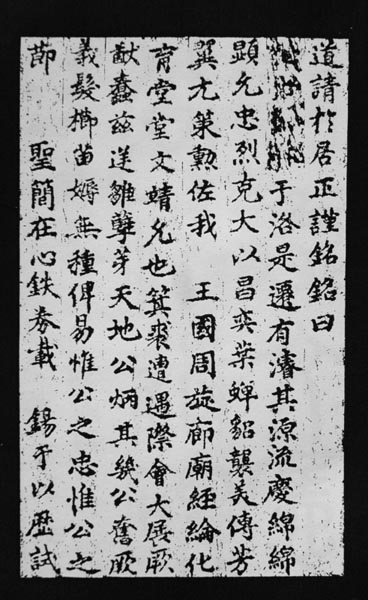 道請於居正謹銘銘曰
于洛是遷有濬其源流慶綿綿
顯允忠烈克大以昌奕葉蟬貂襲美傳芳
巽策勳佐我 王國周旋廊廟經綸化
育堂堂文靖允也箕裘遭遇際會大展厥
猷蠢茲逆雛孽芽天地公炳其幾公奮厥
義髮櫛苗薅無種俾易惟公之忠惟公之
節 聖簡在心鉄券載 錫于以歷試